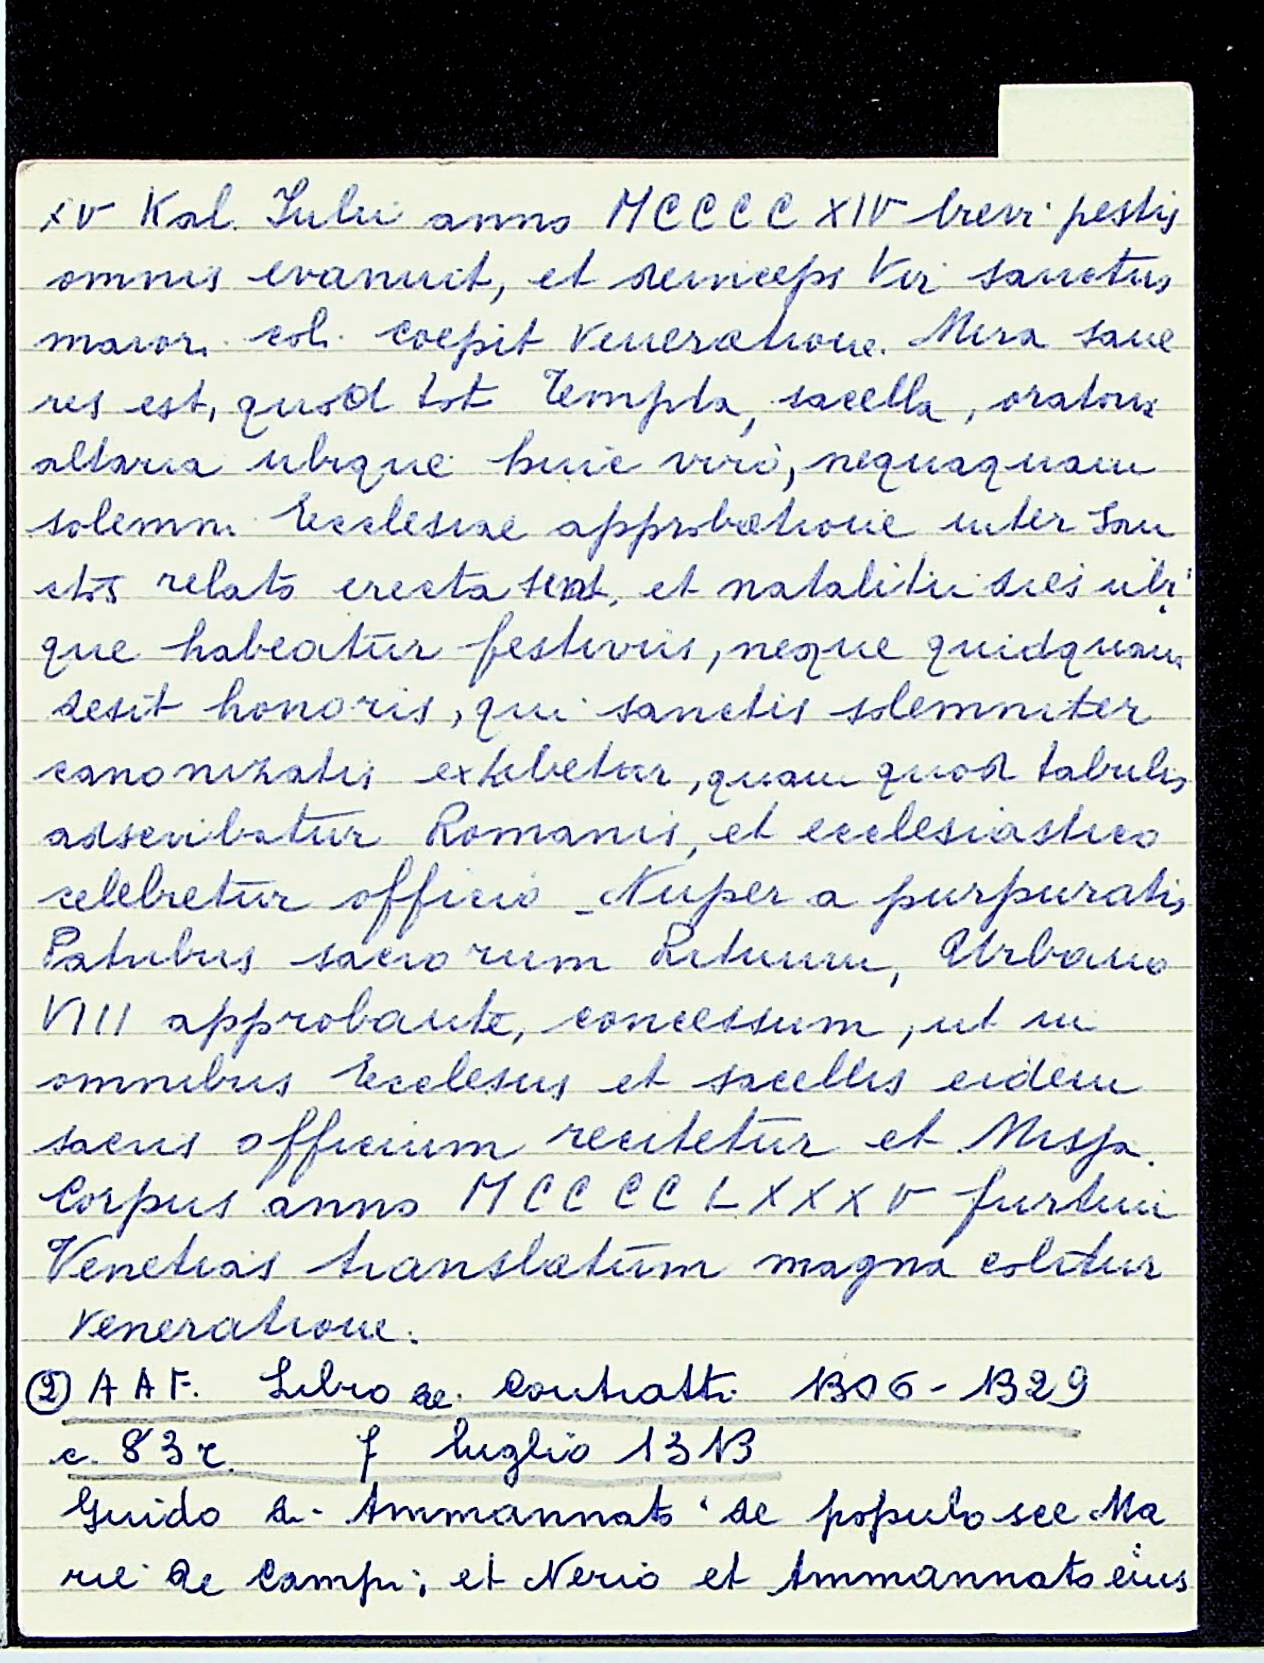 XV Kal. Iulii anno MCCCCXIV brevi pestis
omnis evanuit, et deinceps Vir sanctus
maiori coli coepit veneratione. Mira sane
res est, quod tot Templa, sacella, oratoria
altaria ubique huic viro, nequaquam
solemni Ecclesiae approbatione inter San
ctos relato erecta sint, et natalitii dies ubi
que habeatur festivus, neque quidquam
desit honoris, qui sanctis solemniter
canonizatis exhibetur, quam quod tabulis
adscribatur Romanis, et ecclesiastico
celebretur officio - Nuper a purpuratis
Patribus sacrorum Rituum, Urbano
VIII approbante, concessum, ut in
omnibus Ecclesiis et sacellis eidem
sacris officium recitetur et Missa.
Corpus anno MCCCCLXXXV furtim
Venetias translatum magna colitur
veneratione.
2) A A F. Libro de' Contratti 1306-1329
c. 83 r. 7 luglio 1313
Guido di Ammannato de populo sce Ma
rie de Campi, et Nerio et Ammannato eius